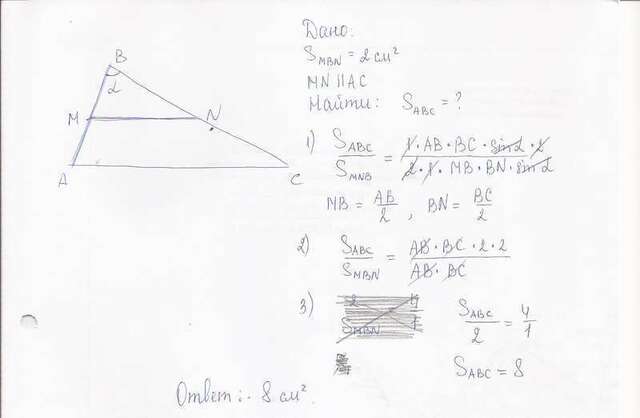 Дано:
S_MBN = 2 см²
MN || AC
Найти: S_ABC = ?
B
α
M
N
A
C
1) S_ABC / S_MNB = 1 · AB · BC · sin α · 2 / 2 · 1 · MB · BN · sin α
MB = AB / 2 , BN = BC / 2
2) S_ABC / S_MBN = AB · BC · 2 · 2 / AB · BC
3) S_ABC / 2 = 4 / 1
S_ABC = 8
Ответ: 8 см².